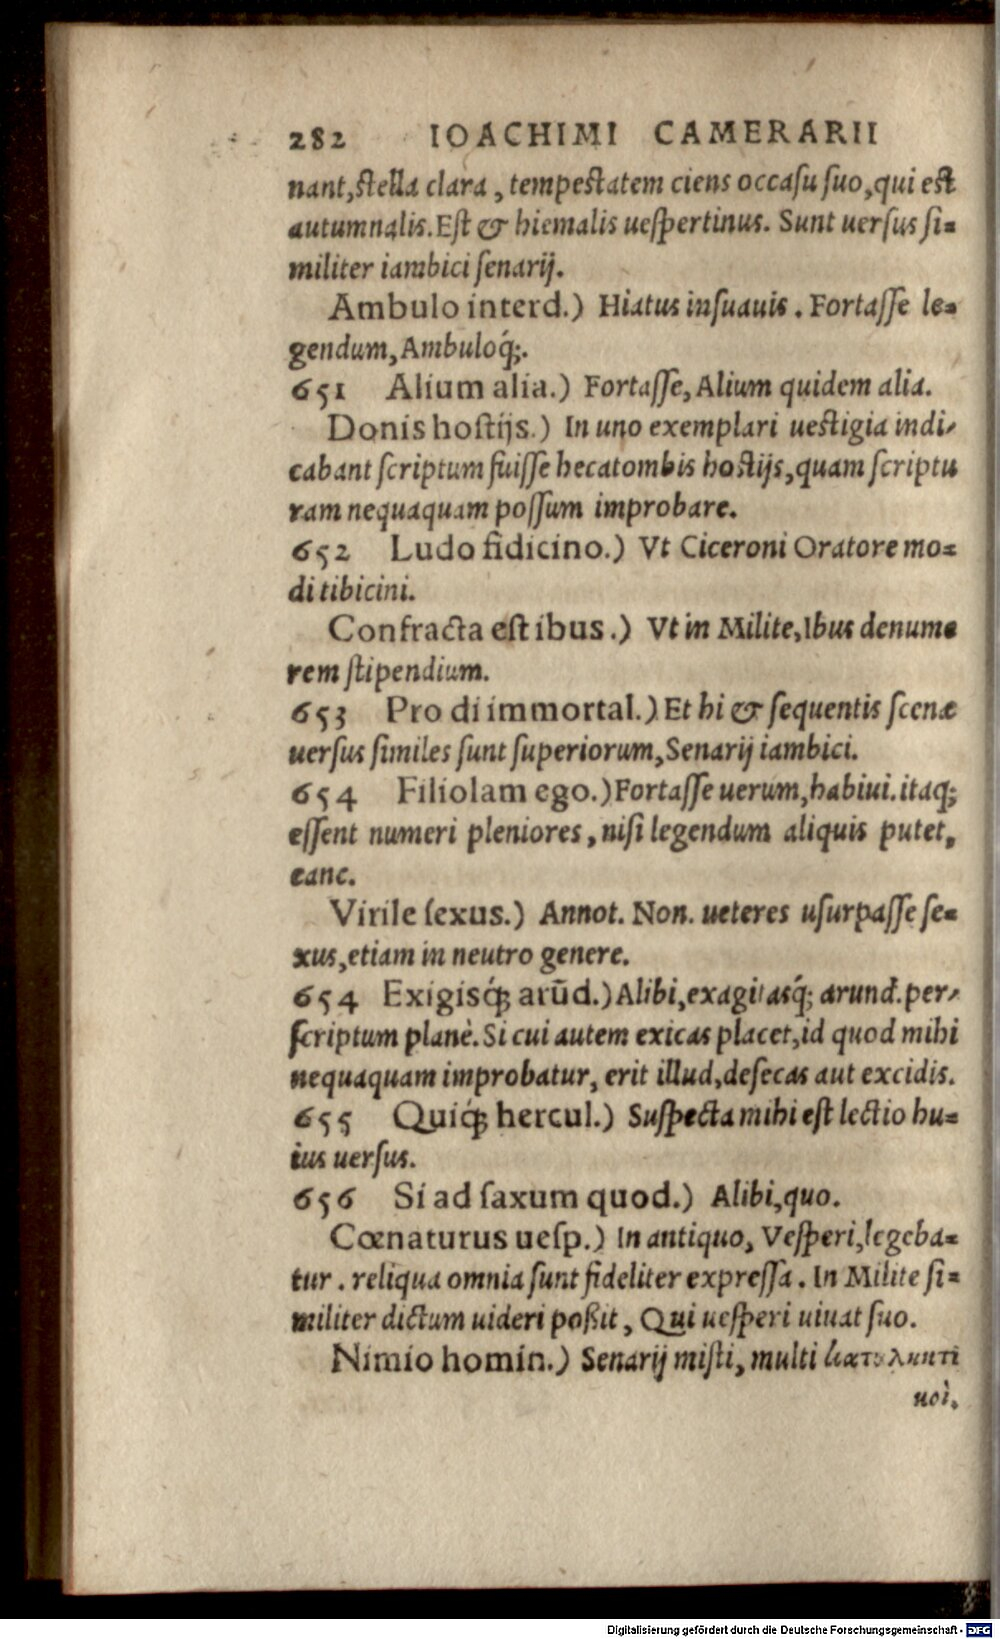 282 IOACHIMI CAMERARII
nant, stella clara, tempestatem ciens occasu suo, qui est
autumnalis. Est & hiemalis uespertinus. Sunt uersus si=
militer iambici senarij.
Ambulo interd.) Hiatus insuauis. Fortasse le=
gendum, Ambuloq́;.
651 Alium alia.) Fortasse, Alium quidem alia.
Donis hostijs.) In uno exemplari uestigia indi-
cabant scriptum fuisse hecatombis hostijs, quam scriptu
ram nequaquam possum improbare.
652 Ludo fidicino.) Vt Ciceroni Oratore mo=
di tibicini.
Confracta est ibus.) Vt in Milite, Ibus denume
rem stipendium.
653 Pro di immortal.) Et hi & sequentis scenæ
uersus similes sunt superiorum, Senarij iambici.
654 Filiolam ego.) Fortasse uerum, habiui. itaq;
essent numeri pleniores, nisi legendum aliquis putet,
eanc.
Virile sexus.) Annot. Non. ueteres usurpasse se=
xus, etiam in neutro genere.
654 Exigisq́; arūd.) Alibi, exagitasq́; arund. per-
scriptum planè. Si cui autem exicas placet, id quod mihi
nequaquam improbatur, erit illud, desecas aut excidis.
655 Quiq́; hercul.) Suspecta mihi est lectio hu=
ius uersus.
656 Si ad saxum quod.) Alibi, quo.
Cœnaturus uesp.) In antiquo, Vesperi, legeba=
tur. reliqua omnia sunt fideliter expressa. In Milite si=
militer dictum uideri poßit, Qui uesperi uiuat suo.
Nimio homin.) Senarij misti, multi κατυληκτι
uoì.
Digitalisierung gefördert durch die Deutsche Forschungsgemeinschaft - DFG